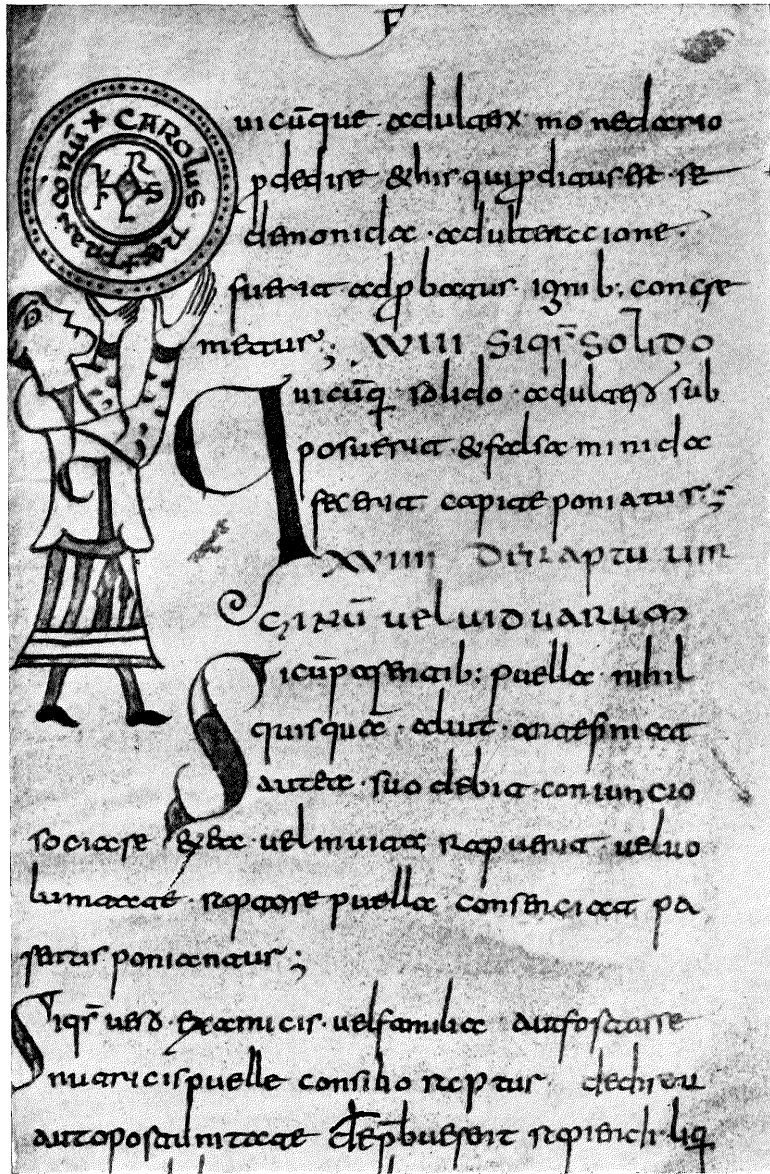 + CAROLUS rex francorū
KRLS
uicūque adulter monedario
pdedire & his qui pdictus est se
demonida adulteracione
fuerit adp batus ignib; concre
metur; XVIII Siqs Solido
Quicūq solido adulterū sub
posuerit & falsa minida
fecerit capite poniatur;
XVIIII De raptu uir
ginū uel uiduarum
Sicū parentib: puella nihil
quisqua
suo debit coniuncio
sociare & ea uel inuita rapuerit uel uo
luntate raptore puella consenciat pa
poniantur;
Siqs uero ex amicis uel familia aut fortasse
nutricis puelle consilio raptus
aut oportunitate rapiendi